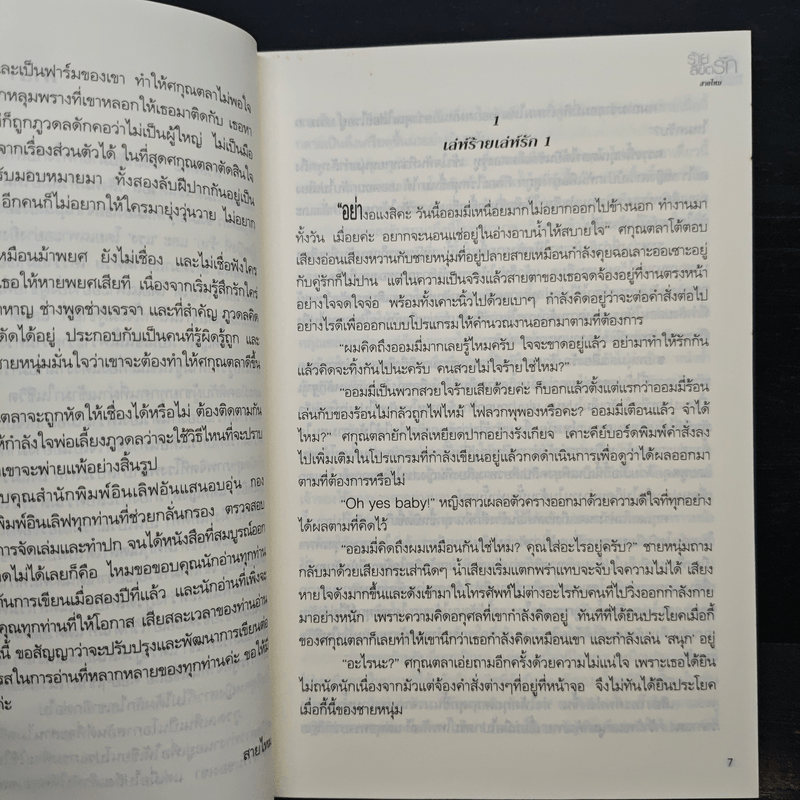 และเป็นฟาร์มของเขา ทำให้ศกุณตลาไม่พอใจ
กหลุมพรางที่เขาหลอกให้เธอมาติดกับ เธอหา
ก็ถูกภูวดลดักคอว่าไม่เป็นผู้ใหญ่ ไม่เป็นมือ
จากเรื่องส่วนตัวได้ ในที่สุดศกุณตลาตัดสินใจ
รับมอบหมายมา ทั้งสองลับฝีปากกันอยู่เป็น
อีกคนก็ไม่อยากให้ใครมายุ่งวุ่นวาย ไม่อยาก
หมือนม้าพยศ ยังไม่เชื่อง และไม่เชื่อฟังใคร
เธอให้หายพยศเสียที เนื่องจากเริ่มรู้สึกรักใคร่
หาญ ช่างพูดช่างเจรจา และที่สำคัญ ภูวดลคิด
ดัดได้อยู่ ประกอบกับเป็นคนที่รู้ผิดรู้ถูก และ
ชายหนุ่มมั่นใจว่าเขาจะต้องทำให้ศกุณตลาดีขึ้น
ตลาจะถูกหัดให้เชื่องได้หรือไม่ ต้องติดตามกัน
ห้กำลังใจพ่อเลี้ยงภูวดลว่าจะใช้วิธีไหนที่จะปราบ
เขาจะพ่ายแพ้อย่างสิ้นรูป
บคุณสำนักพิมพ์อินเลิฟอันแสนอบอุ่น กอง
พิมพ์อินเลิฟทุกท่านที่ช่วยกลั่นกรอง ตรวจสอบ
การจัดเล่มและทำปก จนได้หนังสือที่สมบูรณ์ออก
ดไม่ได้เลยก็คือ ไหมขอขอบคุณนักอ่านทุกท่าน
กันการเขียนเมื่อสองปีที่แล้ว และนักอ่านที่เพิ่งจะ
คุณทุกท่านที่ให้โอกาส เสียสละเวลาของท่านอ่าน
นี้ ขอสัญญาว่าจะปรับปรุงและพัฒนาการเขียนต่อ
รสในการอ่านที่หลากหลายของทุกท่านค่ะ ขอให้มี
ค่ะ
สายไหม
ร้ายลิขิตรัก
สายไหม
1
เล่ห์ร้ายเล่ห์รัก 1
"อย่างอแงสิคะ วันนี้ออมมี่เหนื่อยมากไม่อยากออกไปข้างนอก ทำงานมา
ทั้งวัน เมื่อยค่ะ อยากจะนอนแช่อยู่ในอ่างอาบน้ำให้สบายใจ" ศกุณตลาโต้ตอบ
เสียงอ่อนเสียงหวานกับชายหนุ่มที่อยู่ปลายสายเหมือนกำลังคุยฉอเลาะออเซาะอยู่
กับคู่รักก็ไม่ปาน แต่ในความเป็นจริงแล้วสายตาของเธอจดจ้องอยู่ที่งานตรงหน้า
อย่างใจจดใจจ่อ พร้อมทั้งเคาะนิ้วไปด้วยเบาๆ กำลังคิดอยู่ว่าจะต่อคำสั่งต่อไป
อย่างไรดีเพื่อออกแบบโปรแกรมให้คำนวณงานออกมาตามที่ต้องการ
"ผมคิดถึงออมมี่มากเลยรู้ไหมครับ ใจจะขาดอยู่แล้ว อย่ามาทำให้รักกัน
แล้วคิดจะทิ้งกันไปนะครับ คนสวยไม่ใจร้ายใช่ไหม?"
"ออมมี่เป็นพวกสวยใจร้ายเสียด้วยค่ะ ก็บอกแล้วตั้งแต่แรกว่าออมมี่ร้อน
เล่นกับของร้อนไม่กลัวถูกไฟไหม้ ไฟลวกพุพองหรือคะ? ออมมี่เตือนแล้ว จำได้
ไหม?" ศกุณตลายักไหล่เหยียดปากอย่างรังเกียจ เคาะคีย์บอร์ดพิมพ์คำสั่งลง
ไปเพิ่มเติมในโปรแกรมที่กำลังเขียนอยู่แล้วกดดำเนินการเพื่อดูว่าได้ผลออกมา
ตามที่ต้องการหรือไม่
"Oh yes baby!" หญิงสาวเผลอตัวครางออกมาด้วยความดีใจที่ทุกอย่าง
ได้ผลตามที่คิดไว้
"ออมมี่คิดถึงผมเหมือนกันใช่ไหม? คุณใส่อะไรอยู่ครับ?" ชายหนุ่มถาม
กลับมาด้วยเสียงกระเส่านิดๆ น้ำเสียงเริ่มแตกพร่าแทบจะจับใจความไม่ได้ เสียง
หายใจดังมากขึ้นและดังเข้ามาในโทรศัพท์ไม่ต่างอะไรกับคนที่ไปวิ่งออกกำลังกาย
มาอย่างหนัก เพราะความคิดอกุศลที่เขากำลังคิดอยู่ ทันทีที่ได้ยินประโยคเมื่อกี้
ของศกุณตลาก็เลยทำให้เขานึกว่าเธอกำลังคิดเหมือนเขา และกำลังเล่น 'สนุก' อยู่
"อะไรนะ?" ศกุณตลาเอ่ยถามอีกครั้งด้วยความไม่แน่ใจ เพราะเธอได้ยิน
ไม่ถนัดนักเนื่องจากมัวแต่จ้องคำสั่งต่างๆที่อยู่ที่หน้าจอ จึงไม่ทันได้ยินประโยค
เมื่อกี้นี้ของชายหนุ่ม
7